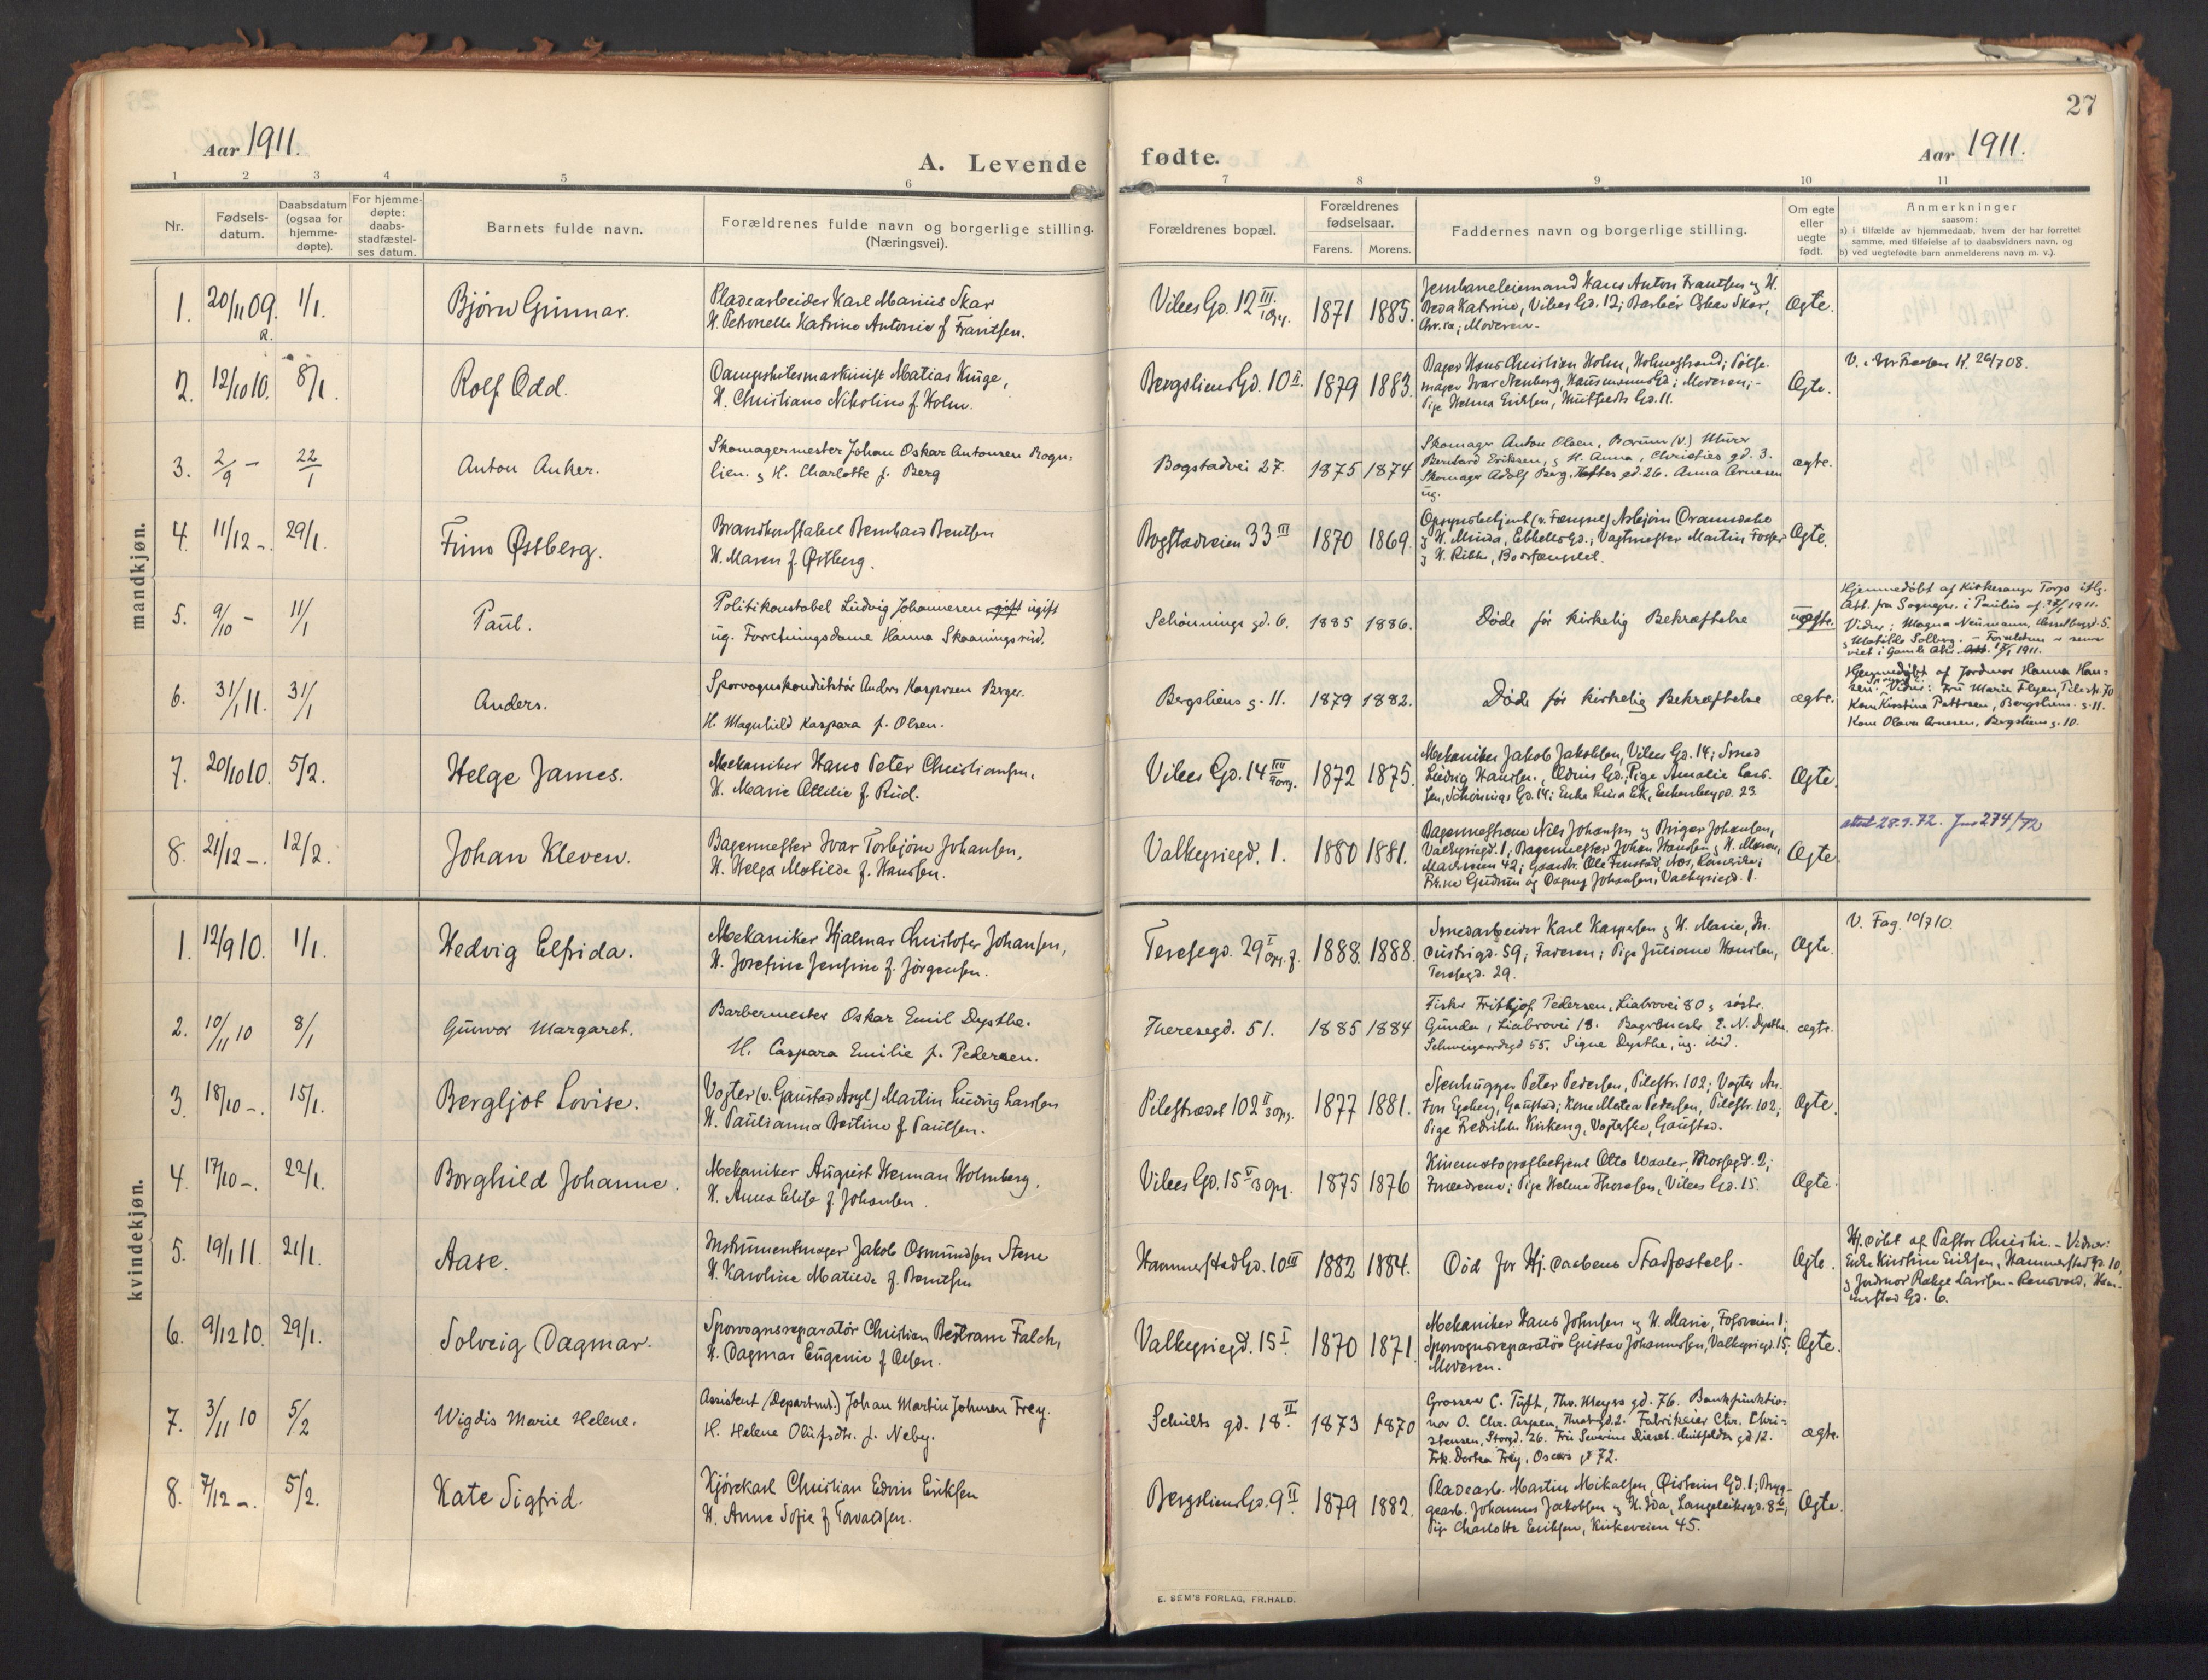 27
Aar 1911.
A. Levende
fødte.
Aar 1911.
1 2 3 4 5 6 7 8 9 10 11
Nr.
Fødsels-
datum.
Daabsdatum
(ogsaa for
hjemme-
døpte).
For hjemme-
døpte:
daabs-
stadfæstel-
ses datum.
Barnets fulde navn.
Forældrenes fulde navn og borgerlige stilling.
(Næringsvei).
Forældrenes bopæl.
Forældrenes
fødselsaar.
Farens. Morens.
Faddernes navn og borgerlige stilling.
Om egte
eller
uegte
født.
Anmerkninger
saasom:
a) i tilfælde av hjemmedaab, hvem der har forrettet
samme, med tilføielse af to daabsvidners navn, og
b) ved uegtefødte barn anmelderens navn m. v.).
mandkjøn.
1. 20/11 09. 1/1. Bjørn Gunnar.
Pladearbeider Karl Marius Skar
H. Petronelle Katrine Antonie f. Frantsen.
Vibes Gd. 12 III 1871 1885.
Jernbaneleiemand Hans Anton Frantsen og H.
Beda Katrine, Vibes Gd. 12; Barber Oskar Skar,
Moderen.
Egte.
2. 12/10 10. 8/1. Rolf Odd.
Matias Kinge,
H. Christiane Nikoline f. Holm.
Bergsliens Gd. 10 II. 1879 1883.
Bager Hans Christian Holm, Holmestrand; Pølse-
mager Ivar Stenberg, Hausmanns Gd; Moderen;
Pige Helma Eriksen, Huitfeldts Gd. 11.
Egte.
K. 26/7 08.
3. 2/9 - 22/1 Anton Anker.
Skomagermester Johan Oskar Antonsen Rogn-
lien. og H. Charlotte f. Berg
Bogstadvei 27. 1875 1874
Skomager Anton Olsen, Bærum (V.) Murer
Bernhard Eriksen, og H. Anna, Christies gd. 3.
Skomager Adolf Berg, Heftes gd. 26. Anna Arnesen
ug.
ægte.
4. 11/12 -. 29/1. Finn Østberg.
Brandkonstabel Bernhard Bentsen
H. Maren f. Østberg.
Bogstadveien 33 III 1870 1869.
Opsynsbetjent (v. Fængsel) Asbjørn
og H. Minda, Vagtmester Martin Fosser
og H. Rikke, Bodsfængslet.
Egte.
5. 9/10 - 11/1 Paul.
Politikonstabel Ludvig Johannesen gift ugift
ug. Forretningsdame Hanna Skaaningsrud.
Schønnings gd. 6. 1885 1886.
Døde før kirkelig Bekræftelse
uægte.
Hjemmedøbt af Kirkesanger Torp iflg.
Att. fra Sognepr. i Paulus af 1911.
Vidner: Magna Neumann,
og Matilde Solberg. - Forældrene er senere
viet i Gamle Aker 1911.
6. 31/1 11. 31/1 Anders.
Sporvognskonduktør Anders Kaspersen Berger.
H. Magnhild Kaspara f. Olsen.
Bergsliens g. 11. 1879 1882.
Døde før kirkelig Bekræftelse
ægte.
Hjemmedøbt af Jordmor Hanna Han-
sen. Vidner: Fru Marie Flygen, Pilestr. 70
Kone Kirstine Pettersen, Bergsliens g. 11.
Kone Olava Arnesen, Bergsliens g. 10.
7. 20/10 10. 5/2. Helge James.
Mekaniker Hans Peter Christiansen,
H. Marie Ottilie f. Rud.
Vibes Gd. 14 III 1872 1875.
Mekaniker Jakob Jakobsen, Vibes Gd. 14; Smed
Ludvig Hansen, Odins Gd; Pige Amalie Lar-
sen, Schønnings Gd. 14; Enke Lina Ek, Eckersberggd. 23.
Egte.
8. 21/12 -. 12/2. Johan Kleven.
Bagermester Ivar Torbjørn Johansen,
H. Helga Matilde f. Hansen.
Valkyriegd. 1. 1880 1881.
Bagermestrene Nils Johansen og Birger Johansen,
Valkyriegd. 1; Bagermester Johan Hansen og H. Maren,
42; Gaardbr. Ole Finstad, Nes, Romerike;
Frkne Gudrun og Dagny Johansen, Valkyriegd. 1.
Egte.
attest 28.9.72. Jnr 274/72
kvindekjøn.
1. 12/9 10. 1/1. Hedvig Elfrida.
Mekaniker Hjalmar Christofer Johansen,
H. Josefine Jensine f. Jørgensen.
Teresegd. 29 I 1888. 1888.
Smedarbeider Karl Kaspersen og H. Marie, In-
dustrigd. 59; Faderen; Pige Juliane Hansen,
Teresegd. 29.
Egte.
V. Fag. 10/7 10.
2. 10/11 10 8/1 Gunvor Margaret.
Barbermester Oskar Emil Dysthe.
H. Caspara Emilie f. Pedersen.
Theresegd. 51. 1885 1884
Fisker Frithjof Pedersen, Liabrovei 80 og søster
Gunda, Liabrovei 18. N. Dysthe.
Schweigaardsgd 55. Signe Dysthe, ug. ibid.
ægte.
3. 18/10 -. 15/1. Bergljot Lovise.
Vogter (v. Gaustad Asyl) Martin Ludvig Larsen
H. Paulianna Bertine f. Paulsen.
Pilestrædet 102 II 1877 1881.
Stenhugger Peter Pedersen, Pilestr. 102; Vogter An-
ton Egeberg, Gaustad; Kone Matea Pedersen, Pilestr. 102;
Pige Fredrikke Kirkeng, Vogterske, Gaustad.
Egte.
4. 17/10 -. 22/1. Borghild Johanne.
Mekaniker August Herman Holmberg,
H. Anna Elise f. Johansen.
Vibes Gd. 15 V 1875 1876
Kinematografbetjent Otto Waaler, Mossegd. 2;
Forældrene; Pige Helene Thoresen, Vibes Gd. 15.
Egte.
5. 19/1 11. 21/1. Aase.
Instrumentmager Jakob Osmundsen Stene
H. Karoline Matilde f. Berntsen
Hammerstad Gd. 10 III 1882 1884.
Død før Hj. daabens Stadfæstelse.
Egte.
Hj. døbt af Pastor Christie. - Vidner:
Enke Kirstine Eriksen, Hammerstad Gd. 10,
og Jordmor Larsen - Renovold, Ham-
merstad Gd. 6.
6. 9/12 10. 29/1. Solveig Dagmar.
Sporvognsreparatør Christian Bertram Falch,
H. Dagmar Eugenie f. Olsen.
Valkyriegd. 15 I 1870 1871
Mekaniker Hans Johnsen og H. Marie, Fossveien 1;
Sporvognsreparatør Gustav Johannesen, Valkyriegd. 15;
Moderen.
Egte.
7. 3/11 10 5/2 Wigdis Marie Helene.
Assistent (Departmt.) Johan Martin Johnsen Frey.
H. Helene Olufsdtr. f. Neby.
Schults gd. 18 II. 1873 1870
Grosserer C. Tuft, Tho. Meyers gd. 76. Bankfunktio-
nær O. Chr. Aspen, Fabrikeier Chr. Chri-
stensen, Storgd. 26. Fru Severine Diesel. Huitfeldts gd 12.
Frk. Dortea Frey, Oscars gd 72.
ægte.
8. 7/12 -. 5/2. Kate Sigfrid.
Kjørekarl Christian Edvin Eriksen
H. Anne Sofie f. Torvaldsen.
Bergsliens Gd. 9 II 1879 1882.
Pladearb. Martin Mikalsen, Øisteins Gd. 1; Bryg-
gearb. Johannes Jakobsen og H. Ida, Langeleiksgd. 8 b;
Pige Charlotte Eriksen, Kirkeveien 45.
Egte.
E. SEM'S FORLAG, FR.HALD.